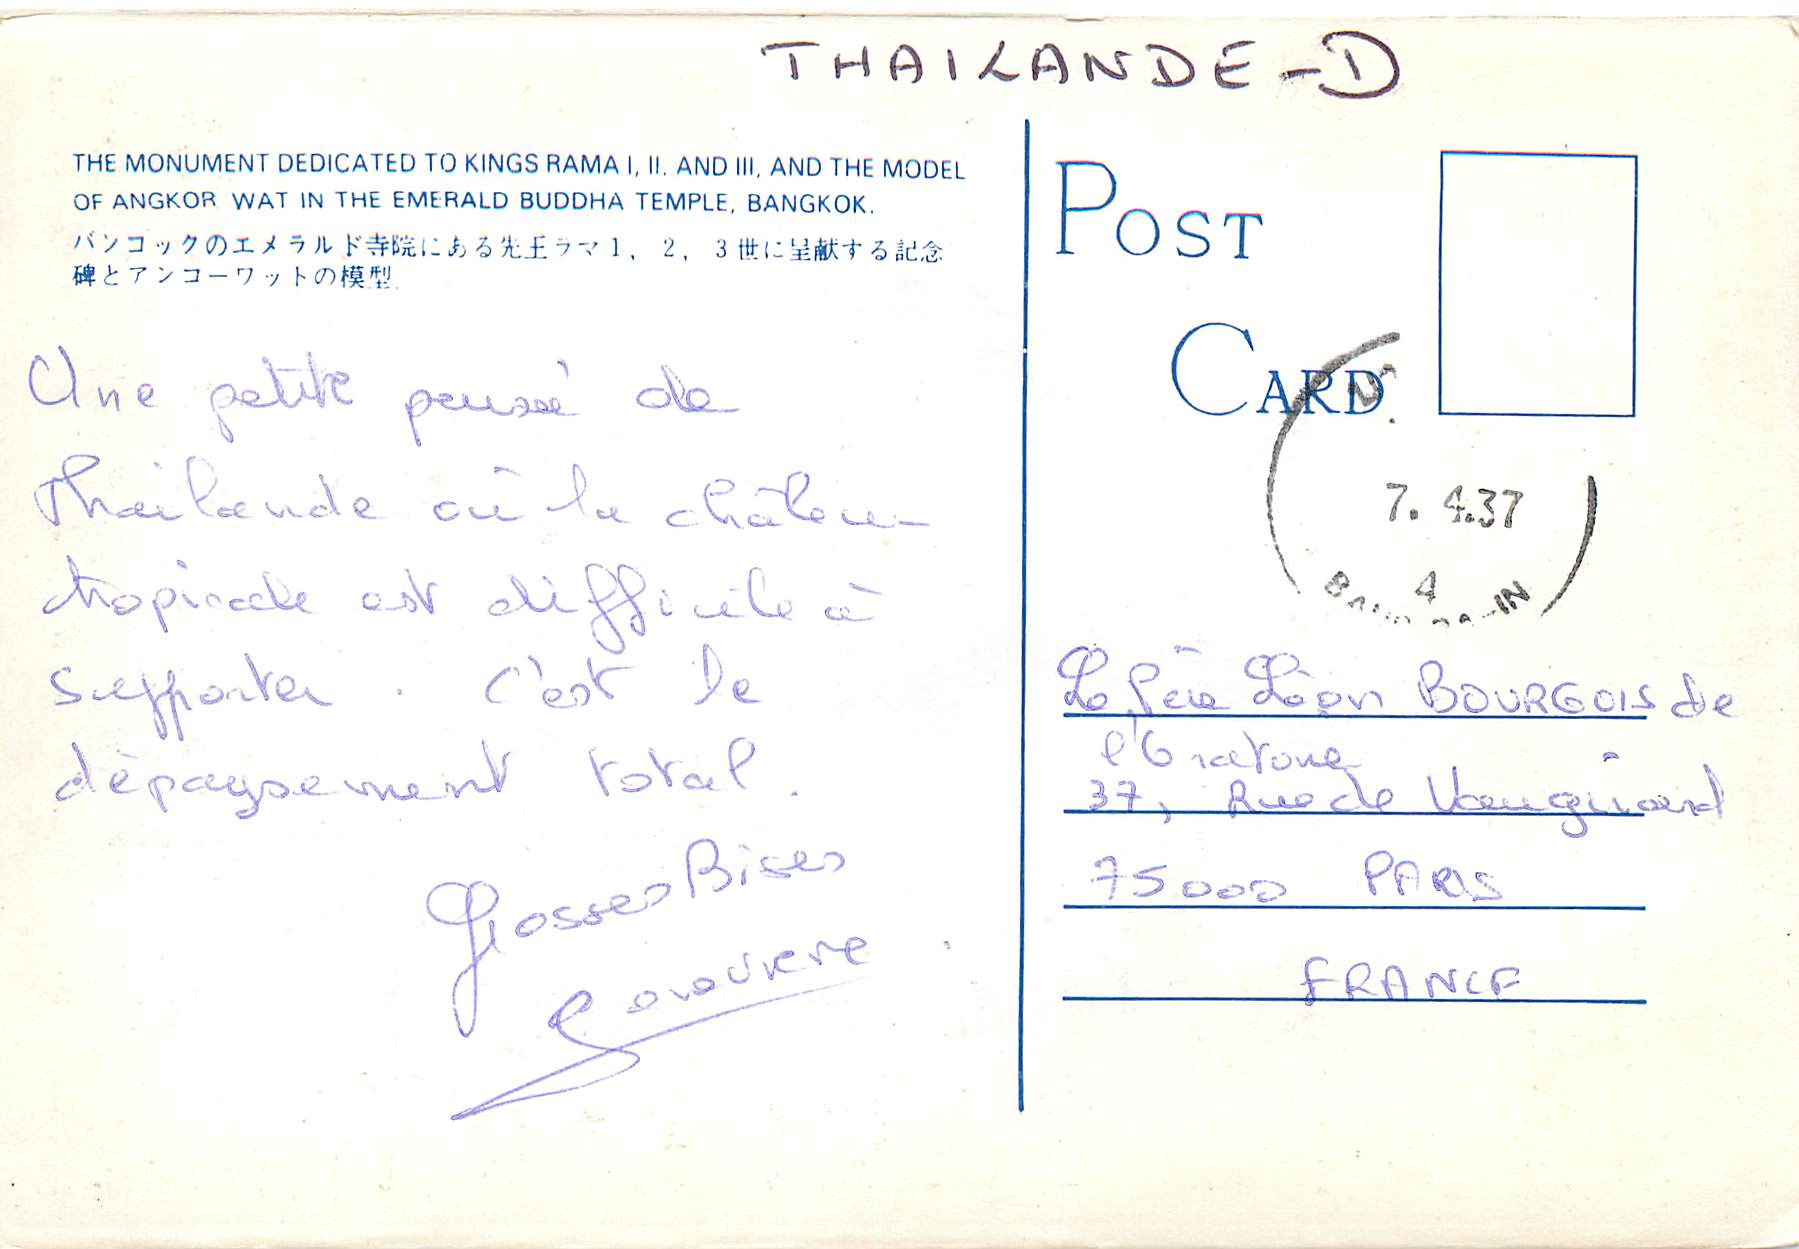 THAILANDE-D
THE MONUMENT DEDICATED TO KINGS RAMA I, II. AND III, AND THE MODEL
OF ANGKOR WAT IN THE EMERALD BUDDHA TEMPLE, BANGKOK.
バンコックのエメラルド寺院にある先王ラマ1, 2, 3世に呈献する記念
碑とアンコーワットの模型
Une petite pensée de
Thaïlande où la châleur
tropicale est difficile à
supporter. C'est le
dépaysement total.
Grosses Bises
Genevieve
POST
CARD
7. 4.37
4
Le Père Léon BOURGOIS de
l'Oratoire
37, Rue de Vaugirard
75000 PARIS
FRANCE